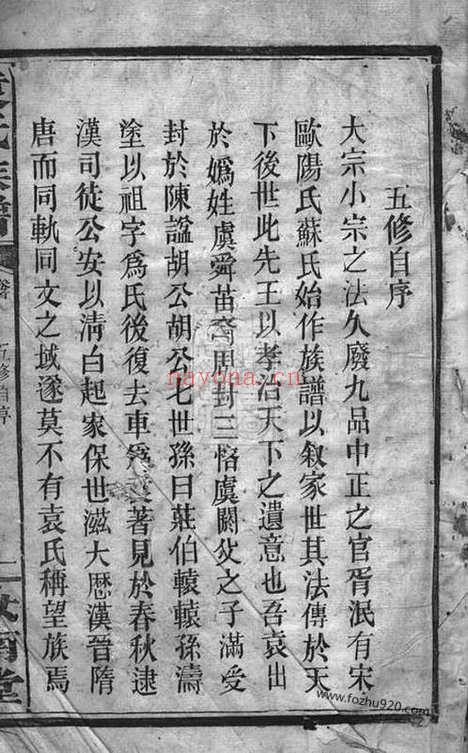 五修自序
大宗小宗之法久廢九品中正之官胥泯有宋
歐陽氏蘇氏始作族譜以叙家世其法傳於天
下後世此先王以孝治天下之遺意也吾袁出
於嬀姓虞舜苗裔周封三恪虞閼父之子滿受
封於陳謚胡公胡公七世孫曰莊伯轅轅孫濤
塗以祖字爲氏後復去車爲袁著見於春秋逮
漢司徒公安以清白起家保世滋大歴漢晉隋
唐而同軌同文之域遂莫不有袁氏稱望族焉
氏族譜
五修自序
一
堂
nayona.cn
www.fozhu920.com